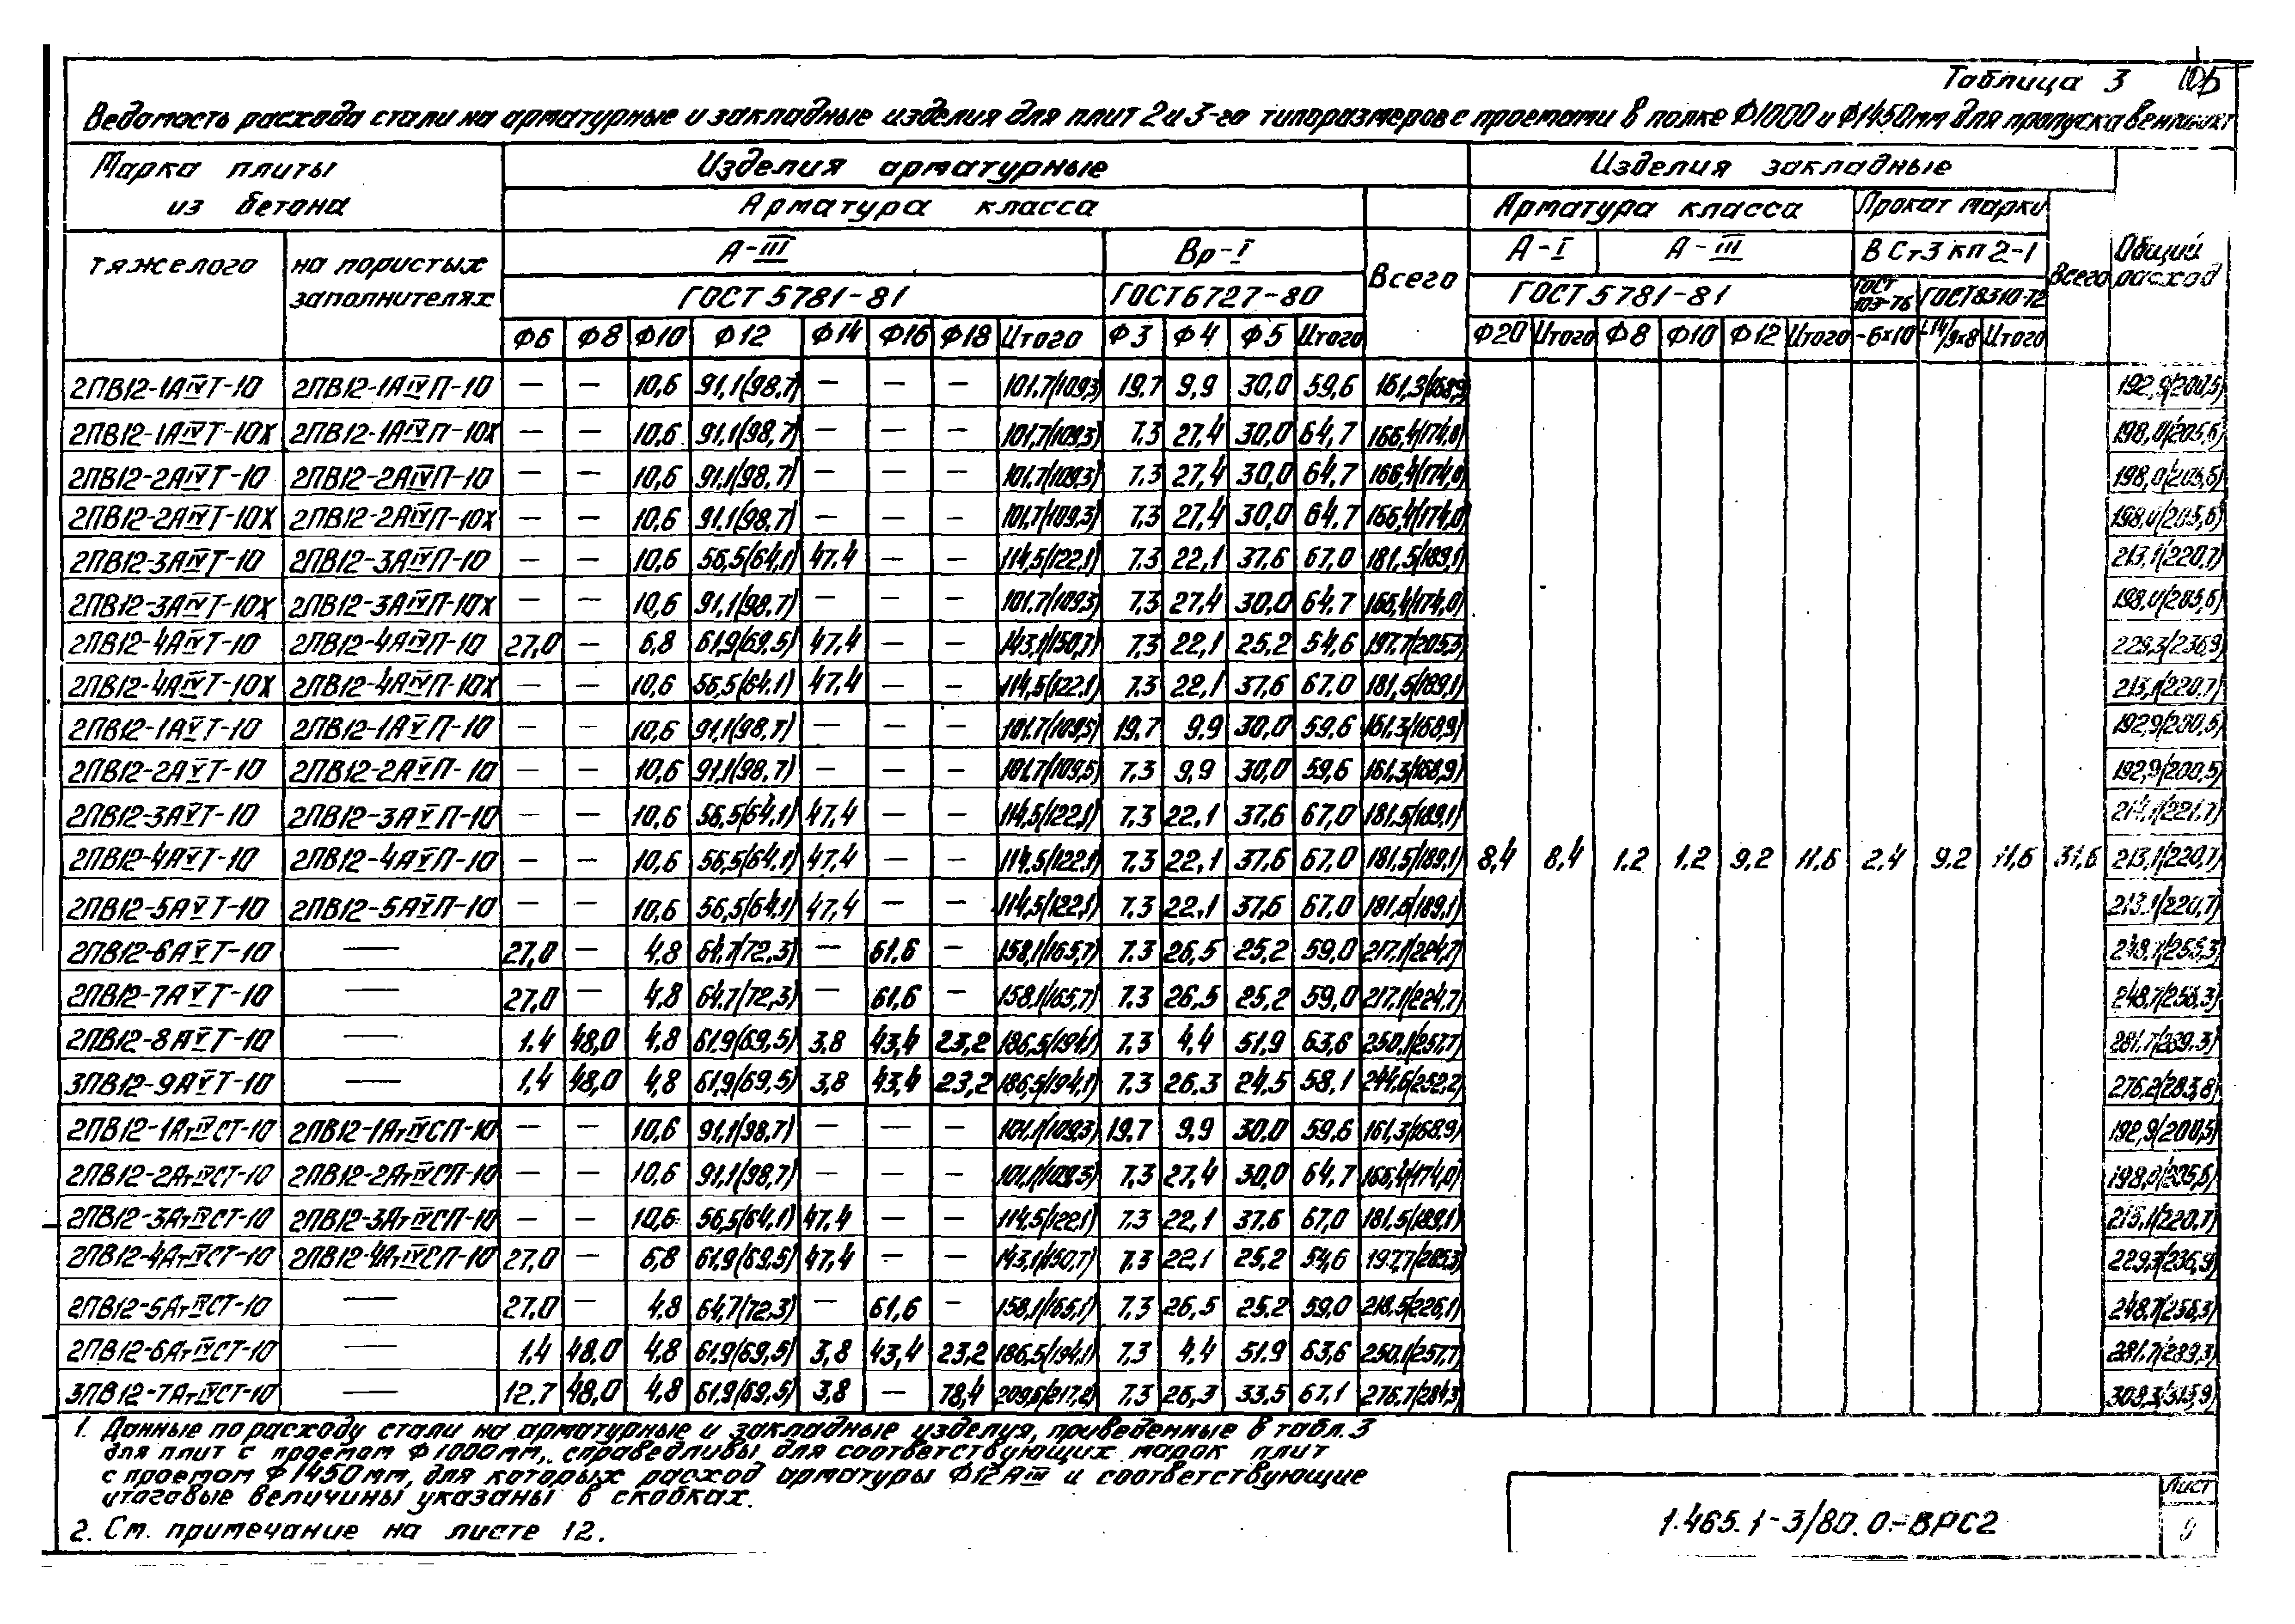 Таблица 3
Ведомость расхода стали на арматурные и закладные изделия для плит 2 и 3-го типоразмеров с проемами в полке Ф1000 и Ф1450мм для пропуска вентшахт
Марка плиты из бетона
Изделия арматурные
Изделия закладные
Общий расход
Арматура класса
Всего
Арматура класса
Прокат марки
Всего
тяжелого
на пористых заполнителях
А-III
Вр-I
А-I
А-III
ВСт3кп2-1
ГОСТ 5781-81
ГОСТ 6727-80
ГОСТ 5781-81
ГОСТ 103-76
ГОСТ 8510-72
Ф6 Ф8 Ф10 Ф12 Ф14 Ф16 Ф18 Итого Ф3 Ф4 Ф5 Итого Ф20 Итого Ф8 Ф10 Ф12 Итого -6×10 Итого
2ПВ12-1АIVТ-10 2ПВ12-1АIVП-10 — — 10,6 91,1(98,7) — — — 101,7(109,3) 19,7 9,9 30,0 59,6 161,3(168,9) 192,9(200,5)
2ПВ12-1АIVТ-10Х 2ПВ12-1АIVП-10Х — — 10,6 91,1(98,7) — — — 101,7(109,3) 7,3 27,4 30,0 64,7 166,4(174,0) 198,0(205,6)
2ПВ12-2АIVТ-10 2ПВ12-2АIVП-10 — — 10,6 91,1(98,7) — — — 101,7(109,3) 7,3 27,4 30,0 64,7 166,4(174,0) 198,0(205,6)
2ПВ12-2АIVТ-10Х 2ПВ12-2АIVП-10Х — — 10,6 91,1(98,7) — — — 101,7(109,3) 7,3 27,4 30,0 64,7 166,4(174,0) 198,0(205,6)
2ПВ12-3АIVТ-10 2ПВ12-3АIVП-10 — — 10,6 56,5(64,1) 47,4 — — 114,5(122,1) 7,3 22,1 37,6 67,0 181,5(189,1) 213,1(220,7)
2ПВ12-3АIVТ-10Х 2ПВ12-3АIVП-10Х — — 10,6 91,1(98,7) — — — 101,7(109,3) 7,3 27,4 30,0 64,7 166,4(174,0) 198,0(205,6)
2ПВ12-4АIVТ-10 2ПВ12-4АIVП-10 27,0 — 6,8 61,9(69,5) 47,4 — — 143,1(150,7) 7,3 22,1 25,2 54,6 197,7(205,3) 229,3(236,9)
2ПВ12-4АIVТ-10Х 2ПВ12-4АIVП-10Х — — 10,6 56,5(64,1) 47,4 — — 114,5(122,1) 7,3 22,1 37,6 67,0 181,5(189,1) 213,1(220,7)
2ПВ12-1АVТ-10 2ПВ12-1АVП-10 — — 10,6 91,1(98,7) — — — 101,7(109,5) 19,7 9,9 30,0 59,6 161,3(168,9) 192,9(200,5)
2ПВ12-2АVТ-10 2ПВ12-2АVП-10 — — 10,6 91,1(98,7) — — — 101,7(109,5) 7,3 9,9 30,0 59,6 161,3(168,9) 192,9(200,5)
2ПВ12-3АVТ-10 2ПВ12-3АVП-10 — — 10,6 56,5(64,1) 47,4 — — 114,5(122,1) 7,3 22,1 37,6 67,0 181,5(189,1) 214,1(221,7)
2ПВ12-4АVТ-10 2ПВ12-4АVП-10 — — 10,6 56,5(64,1) 47,4 — — 114,5(122,1) 7,3 22,1 37,6 67,0 181,5(189,1) 8,4 8,4 1,2 1,2 9,2 11,6 2,4 9,2 11,6 31,6 213,1(220,7)
2ПВ12-5АVТ-10 2ПВ12-5АVП-10 — — 10,6 56,5(64,1) 47,4 — — 114,5(122,1) 7,3 22,1 37,6 67,0 181,6(189,1) 213,1(220,7)
2ПВ12-6АVТ-10 — 27,0 — 4,8 64,7(72,3) — 61,6 — 158,1(165,7) 7,3 26,5 25,2 59,0 217,1(224,7) 248,7(256,3)
2ПВ12-7АVТ-10 — 27,0 — 4,8 64,7(72,3) — 61,6 — 158,1(165,7) 7,3 26,5 25,2 59,0 217,1(224,7) 248,7(256,3)
2ПВ12-8АVТ-10 — 1,4 48,0 4,8 61,9(69,5) 3,8 43,4 23,2 186,5(194,1) 7,3 4,4 51,9 63,6 250,1(257,7) 281,7(289,3)
3ПВ12-9АVТ-10 — 1,4 48,0 4,8 61,9(69,5) 3,8 43,4 23,2 186,5(194,1) 7,3 26,3 24,5 58,1 244,6(252,2) 276,2(283,8)
2ПВ12-1АтIVСТ-10 2ПВ12-1АтIVСП-10 — — 10,6 91,1(98,7) — — — 101,1(109,3) 19,7 9,9 30,0 59,6 161,3(168,9) 192,9(200,5)
2ПВ12-2АтIVСТ-10 2ПВ12-2АтIVСП-10 — — 10,6 91,1(98,7) — — — 101,1(109,3) 7,3 27,4 30,0 64,7 166,4(174,0) 198,0(205,6)
2ПВ12-3АтIVСТ-10 2ПВ12-3АтIVСП-10 — — 10,6 56,5(64,1) 47,4 — — 114,5(122,1) 7,3 22,1 37,6 67,0 181,5(189,1) 213,1(220,7)
2ПВ12-4АтIVСТ-10 2ПВ12-4АтIVСП-10 27,0 — 6,8 61,9(69,5) 47,4 — — 143,1(150,7) 7,3 22,1 25,2 54,6 197,7(205,3) 229,3(236,9)
2ПВ12-5АтIVСТ-10 — 27,0 — 4,8 64,7(72,3) — 61,6 — 158,1(165,1) 7,3 26,5 25,2 59,0 218,5(226,1) 248,7(256,3)
2ПВ12-6АтIVСТ-10 — 1,4 48,0 4,8 61,9(69,5) 3,8 43,4 23,2 186,5(194,1) 7,3 4,4 51,9 63,6 250,1(257,7) 281,7(289,3)
3ПВ12-7АтIVСТ-10 — 12,7 48,0 4,8 61,9(69,5) 3,8 — 78,4 209,6(217,2) 7,3 26,3 33,5 67,1 276,7(284,3) 308,3(315,9)
1. Данные по расходу стали на арматурные и закладные изделия, приведенные в табл.3
для плит с проемом Ф1000мм, справедливы для соответствующих марок плит
с проемом Ф1450мм, для которых расход арматуры Ф12АIII и соответствующие
итоговые величины указаны в скобках.
2. См. примечание на листе 12.
1.465.1-3/80.0-ВРС2
Лист
9